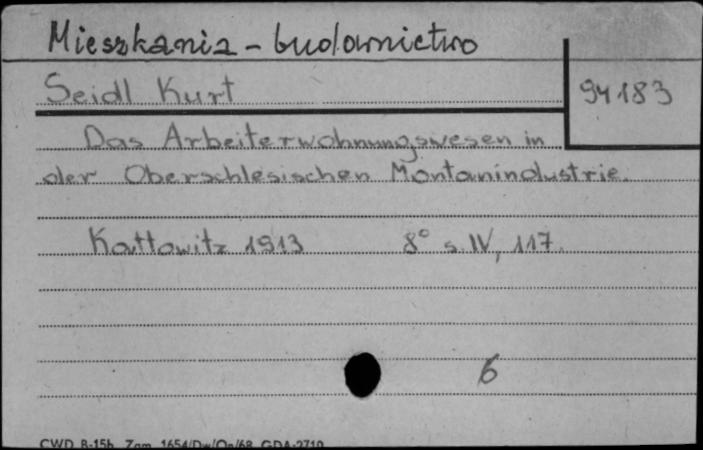 Mieszkania - budownictwo
Seidl Kurt 94183
Das Arbeiterwohnungswesen in
der Oberschlesischen Montanindustrie.
Kattowitz 1913 8° s. IV, 117.
6
CWD B-15h Zam. 1654/Dw/On/68 GDA-2710